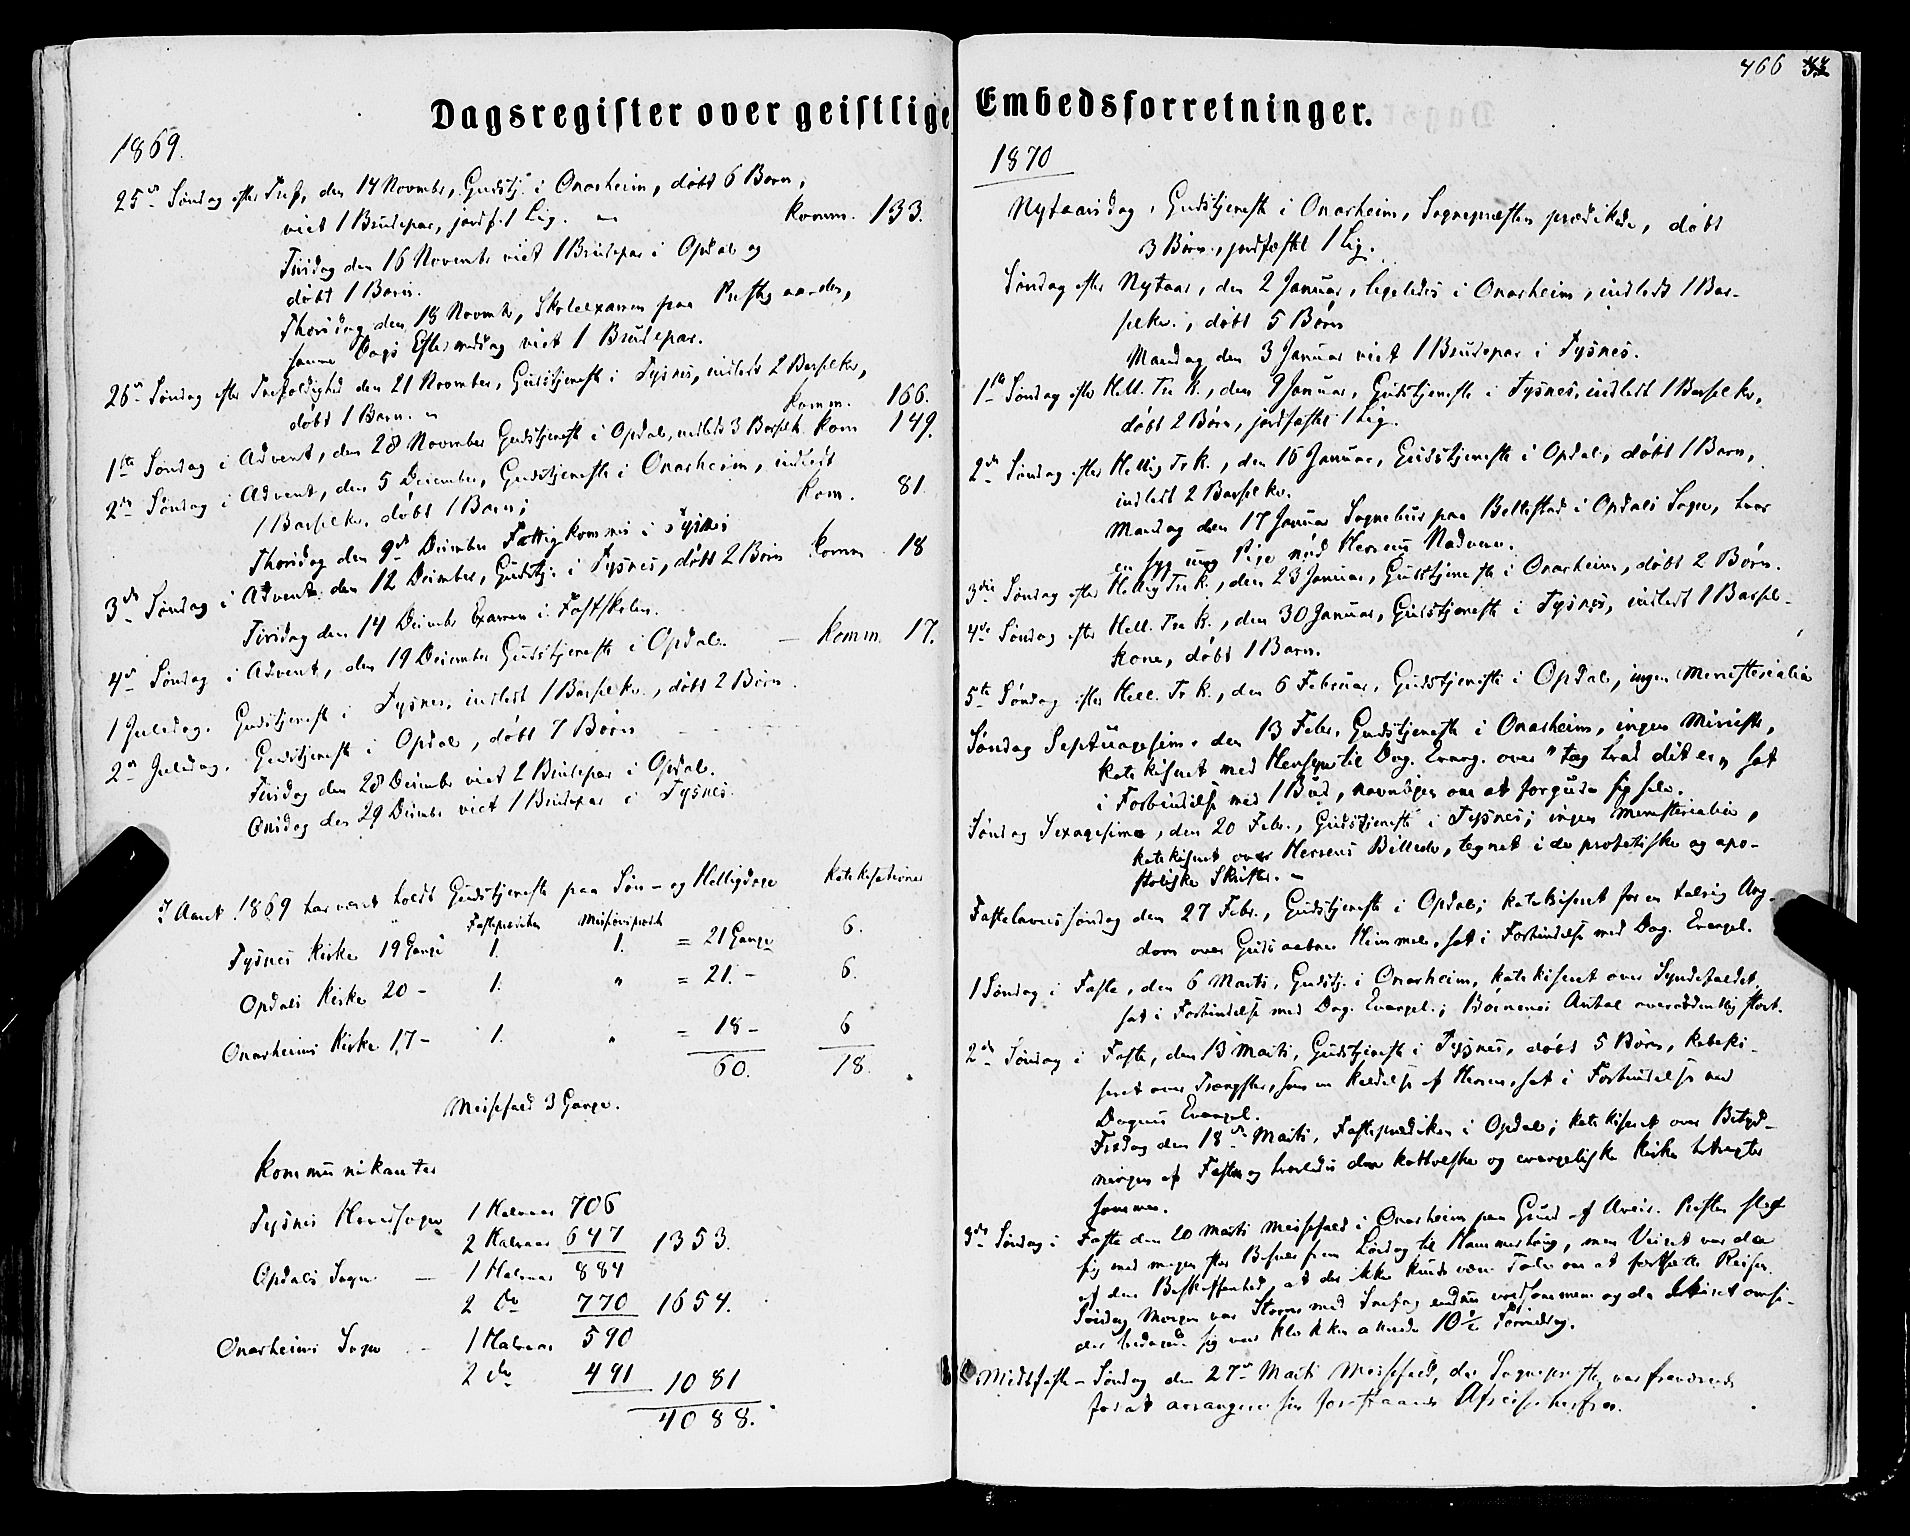 466
Dagsregister over geistlige Embedsforretninger.
1869.
25de Søndag efter Tref, den 14 Novmbr, Gudstj. i Onarheim, døbt 6 Børn,
viet 1 Brudepar, jordf. 1 Lig. — Komm. 133.
Tirsdag den 16 Novembr viet 1 Brudepar i Opdal og
døbt 1 Barn.
Thorsdag den 18 Novmbr, Skoleexamen paa
samme Dags Eftermiddag viet 1 Brudepar.
26de Søndag efter Trefoldighed den 21 November, Gudstjeneste i Tysnes, indledt 2 Barselkr,
døbt 1 Barn. — Komm. 166.
1ste Søndag i Advent, den 28 November Gudstjeneste i Opdal, indledt 3 Barselk. Kom 149.
2den Søndag i Advent, den 5 December, Gudstjeneste i Onarheim, indledt
1 Barselkr. døbt 1 Barn; Kom. 81.
Thorsdag den 9de December Fattigkommis i Tysnes
3de Søndag i Advent den 12 December, Gudstj. i Tysnes, døbt 2 Børn Komm 18
Tirsdag den 14 Decembr Examen i Fastskolen.
4de Søndag i Advent, den 19 December Gudstjeneste i Opdal. — Komm. 17.
1 Juledag. Gudstjeneste i Tysnes, indledt 1 Barselkr., døbt 2 Børn.
2den Juledag. Gudstjeneste i Opdal, døbt 7 Børn
Tirsdag den 28 Decembr viet 2 Brudepar i Opdal.
Onsdag den 29 Decembr viet 1 Brudepar i Tysnes.
I Aaret 1869 har været holdt Gudstjeneste paa Søn- og Helligdage Katekisationer
Fasteprædiken Missionsprædk
Tysnes Kirke 19 Gange 1. 1. = 21 Gange 6.
Opdals Kirke 20 – 1. " = 21. – 6.
Onarheims Kirke 17 – 1. " = 18 – 6
60. 18.
Messefald 3 Gange.
Kommunikanter
Tysnes Hovedsogn 1 Halvaar 706
2 Halvaar 647 1353.
Opdals Sogn — 1 Halvaar 884
2 do 770 1654.
Onarheims Sogn – 1 Halvaar 590
2 do 491 1081
4088.
1870
Nytaarsdag, Gudstjeneste i Onarheim, Sognepræsten prædikede, døbt
3 Børn, jordfæstet 1 Lig.
Søndag efter Nytaar, den 2 Januar, ligeledes i Onarheim, indledt 1 Bar-
selkr., døbt 5 Børn
Mandag den 3 Januar viet 1 Brudepar i Tysnes.
1ste Søndag efter Hell. Tr K., den 9 Januar, Gudstjeneste i Tysnes, indledt 1 Barselkr,
døbt 2 Børn, jordfæstet 1 Lig.
2den Søndag efter Hellig Tr K., den 16 Januar, Gudstjeneste i Opdal, døbt 1 Barn,
indledt 2 Barselkr.
Mandag den 17 Januar Sognebud paa Bellestad i Opdals Sogn, hvor
en syg ung Pige nød Herrens Nadvere.
3die Søndag efter Hellig Tr K., den 23 Januar, Gudstjeneste i Onarheim, døbt 2 Børn.
4de Søndag efter Hell. Tr K., den 30 Januar, Gudstjeneste i Tysnes, indledt 1 Barsel-
kone, døbt 1 Barn.
5te Søndag efter Hell. Tr K., den 6 Februar, Gudstjeneste i Opdal, ingen Ministerialia
Søndag Septuagesima, den 13 Febr, Gudstjeneste i Onarheim, ingen Ministr,
katekiseret med Hensyn til Dag. Evang. over "tag hvad dit er", sat
i Forbindelse med 1 Bud, navnligen om at forgude sig selv.
Søndag Sexagesima, den 20 Febr., Gudstjeneste i Tysnes; ingen Ministerialia,
katekiseret over Herrens Billede, tegnet i de profetiske og apo-
stoliske Skrifter. —
Fastelavnssøndag den 27 Febr., Gudstjeneste i Opdal; katekiseret for en talrig Ung-
dom over Guds aabne Himmel, sat i Forbindelse med Dag. Evangel.
1 Søndag i Faste, den 6 Marts, Gudstj. i Onarheim, katekiseret over Syndefaldet,
sat i Forbindelse med Dag. Evangel.; Børnenes Antal overordentlig stort.
2den Søndag i Faste, den 13 Marts, Gudstjeneste i Tysnes, døbt 5 Børn, kateki-
seret over Trængsler, som en Kaldelse af Herren, sat i Forbindelse med
Dagens Evangel.
Fredag den 18de Marts, Fasteprædiken i Opdal; katekiseret over Betyd-
ningen af Fasten og hvorledes den katholske og evangeliske Kirke betragter
samme.
3die Søndag i Faste den 20 Marts Messefald i Onarheim paa Grund af Uveir. Præsten
sig med megen stor Besvær frem Lørdag til Hammerhaug, men Veiret var da
af den Beskaffenhed, at der ikke kunde være Tale om at fortsætte Reisen.
Søndag Morgen var Storm med Snefog endnu voldsommere og da Veiret omsi-
der bedagede sig var Klokken allerede 10½ Formiddag.
Midfaste-Søndag den 27de Marts Messefald, da Sognepræsten var fraværende
for at arrangere sin forestaaende Afreise herfra.